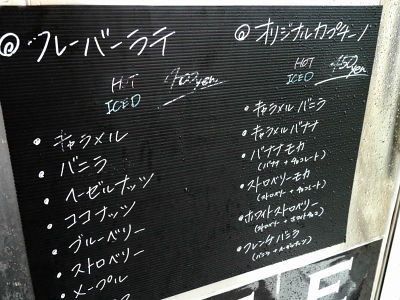 フレーバーラテ
HOT
ICED
yen
キャラメル
バニラ
ヘーゼルナッツ
ココナッツ
ブルーベリー
ストロベリー
メープル
オリジナルカプチーノ
HOT
ICED
450yen
キャラメルバニラ
キャラメルバナナ
バナナモカ
(バナナ+チョコレート)
ストロベリーモカ
(ストロベリー+チョコレート)
ホワイトストロベリー
(ストロベリー+ホワイトチョコ)
フレンチバニラ
(バニラ+ヘーゼルナッツ)